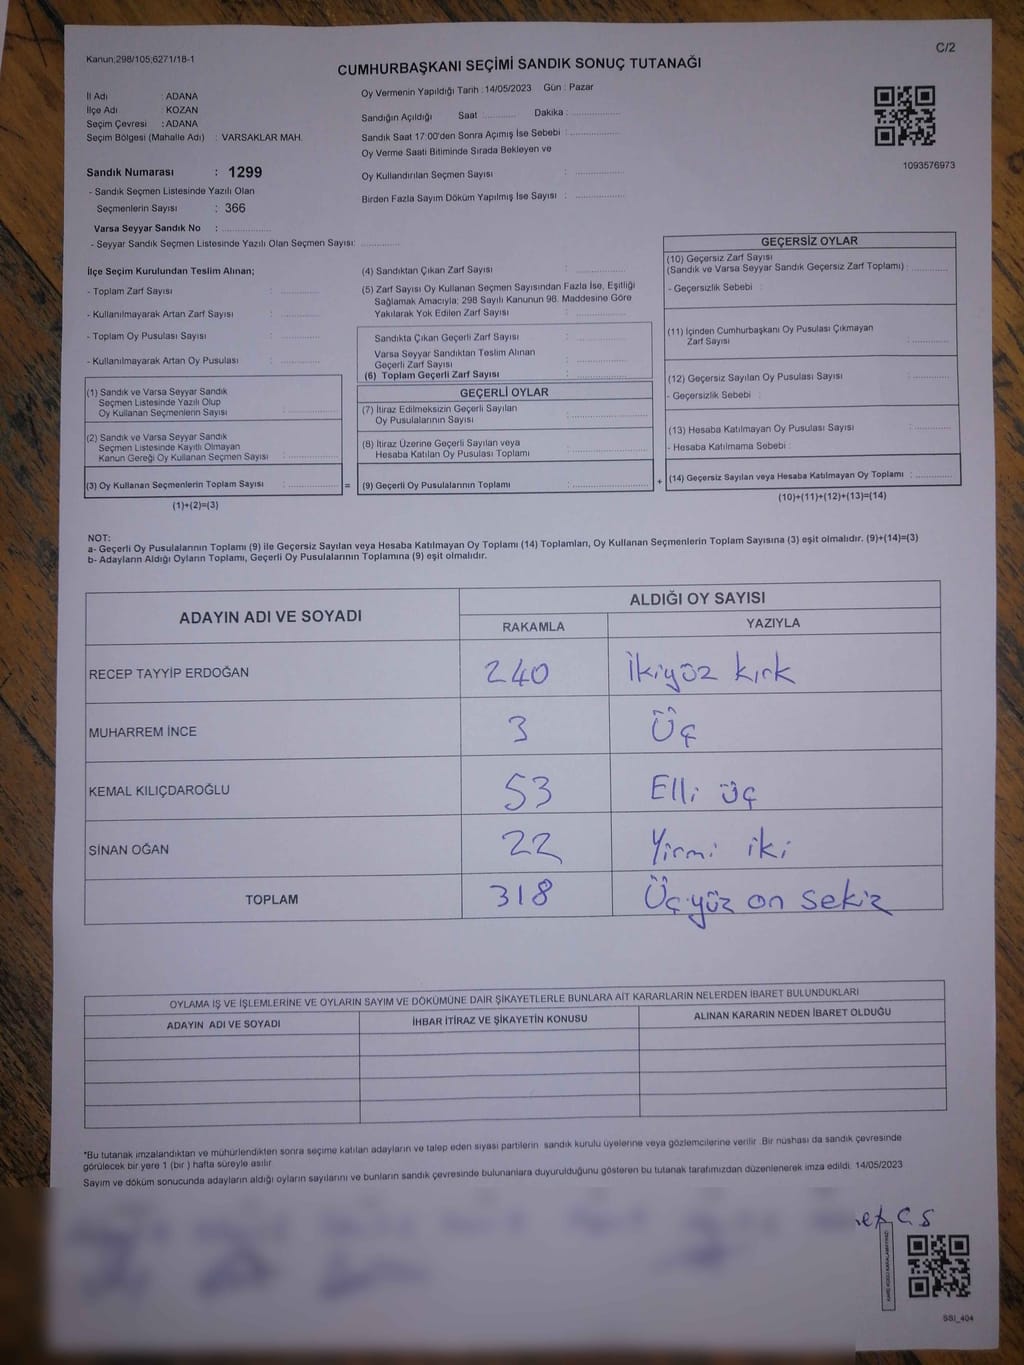 Kanun;298/105;6271/18-1
C/2
CUMHURBAŞKANI SEÇİMİ SANDIK SONUÇ TUTANAĞI
İl Adı : ADANA
İlçe Adı : KOZAN
Seçim Çevresi : ADANA
Seçim Bölgesi (Mahalle Adı) : VARSAKLAR MAH.
Sandık Numarası : 1299
- Sandık Seçmen Listesinde Yazılı Olan
Seçmenlerin Sayısı : 366
Varsa Seyyar Sandık No : ..............
- Seyyar Sandık Seçmen Listesinde Yazılı Olan Seçmen Sayısı: ..............
Oy Vermenin Yapıldığı Tarih : 14/05/2023 Gün : Pazar
Sandığın Açıldığı Saat .............. Dakika : ..............
Sandık Saat 17:00'den Sonra Açımış İse Sebebi : ..............
Oy Verme Saati Bitiminde Sırada Bekleyen ve
Oy Kullandırılan Seçmen Sayısı : ..............
Birden Fazla Sayım Döküm Yapılmış İse Sayısı : ..............
1093576973
İlçe Seçim Kurulundan Teslim Alınan;
- Toplam Zarf Sayısı : ..............
- Kullanılmayarak Artan Zarf Sayısı : ..............
- Toplam Oy Pusulası Sayısı : ..............
- Kullanılmayarak Artan Oy Pusulası : ..............
(1) Sandık ve Varsa Seyyar Sandık
Seçmen Listesinde Yazılı Olup
Oy Kullanan Seçmenlerin Sayısı : ..............
(2) Sandık ve Varsa Seyyar Sandık
Seçmen Listesinde Kayıtlı Olmayan
Kanun Gereği Oy Kullanan Seçmen Sayısı : ..............
(3) Oy Kullanan Seçmenlerin Toplam Sayısı : ..............
(1)+(2)=(3)
=
(4) Sandıktan Çıkan Zarf Sayısı : ..............
(5) Zarf Sayısı Oy Kullanan Seçmen Sayısından Fazla İse, Eşitliği
Sağlamak Amacıyla; 298 Sayılı Kanunun 98. Maddesine Göre
Yakılarak Yok Edilen Zarf Sayısı : ..............
Sandıkta Çıkan Geçerli Zarf Sayısı : ..............
Varsa Seyyar Sandıktan Teslim Alınan
Geçerli Zarf Sayısı : ..............
(6) Toplam Geçerli Zarf Sayısı : ..............
GEÇERLİ OYLAR
(7) İtiraz Edilmeksizin Geçerli Sayılan
Oy Pusulalarının Sayısı : ..............
(8) İtiraz Üzerine Geçerli Sayılan veya
Hesaba Katılan Oy Pusulası Toplamı : ..............
(9) Geçerli Oy Pusulalarının Toplamı : ..............
+
GEÇERSİZ OYLAR
(10) Geçersiz Zarf Sayısı
(Sandık ve Varsa Seyyar Sandık Geçersiz Zarf Toplamı) : ..............
- Geçersizlik Sebebi :
(11) İçinden Cumhurbaşkanı Oy Pusulası Çıkmayan
Zarf Sayısı : ..............
(12) Geçersiz Sayılan Oy Pusulası Sayısı : ..............
- Geçersizlik Sebebi :
(13) Hesaba Katılmayan Oy Pusulası Sayısı : ..............
- Hesaba Katılmama Sebebi :
(14) Geçersiz Sayılan veya Hesaba Katılmayan Oy Toplamı : ..............
(10)+(11)+(12)+(13)=(14)
NOT:
a- Geçerli Oy Pusulalarının Toplamı (9) ile Geçersiz Sayılan veya Hesaba Katılmayan Oy Toplamı (14) Toplamları, Oy Kullanan Seçmenlerin Toplam Sayısına (3) eşit olmalıdır. (9)+(14)=(3)
b- Adayların Aldığı Oyların Toplamı, Geçerli Oy Pusulalarının Toplamına (9) eşit olmalıdır.
ADAYIN ADI VE SOYADI
ALDIĞI OY SAYISI
RAKAMLA YAZIYLA
RECEP TAYYİP ERDOĞAN 240 İkiyüz kırk
MUHARREM İNCE 3 Üç
KEMAL KILIÇDAROĞLU 53 Elli üç
SİNAN OĞAN 22 Yirmi iki
TOPLAM 318 Üç yüz on sekiz
OYLAMA İŞ VE İŞLEMLERİNE VE OYLARIN SAYIM VE DÖKÜMÜNE DAİR ŞİKAYETLERLE BUNLARA AİT KARARLARIN NELERDEN İBARET BULUNDUKLARI
ADAYIN ADI VE SOYADI İHBAR İTİRAZ VE ŞİKAYETİN KONUSU ALINAN KARARIN NEDEN İBARET OLDUĞU
*Bu tutanak imzalandıktan ve mühürlendikten sonra seçime katılan adayların ve talep eden siyasi partilerin sandık kurulu üyelerine veya gözlemcilerine verilir. Bir nüshası da sandık çevresinde
görülecek bir yere 1 (bir ) hafta süreyle asılır.
Sayım ve döküm sonucunda adayların aldığı oyların sayılarını ve bunların sandık çevresinde bulunanlara duyurulduğunu gösteren bu tutanak tarafımızdan düzenlenerek imza edildi. 14/05/2023
SSI_404